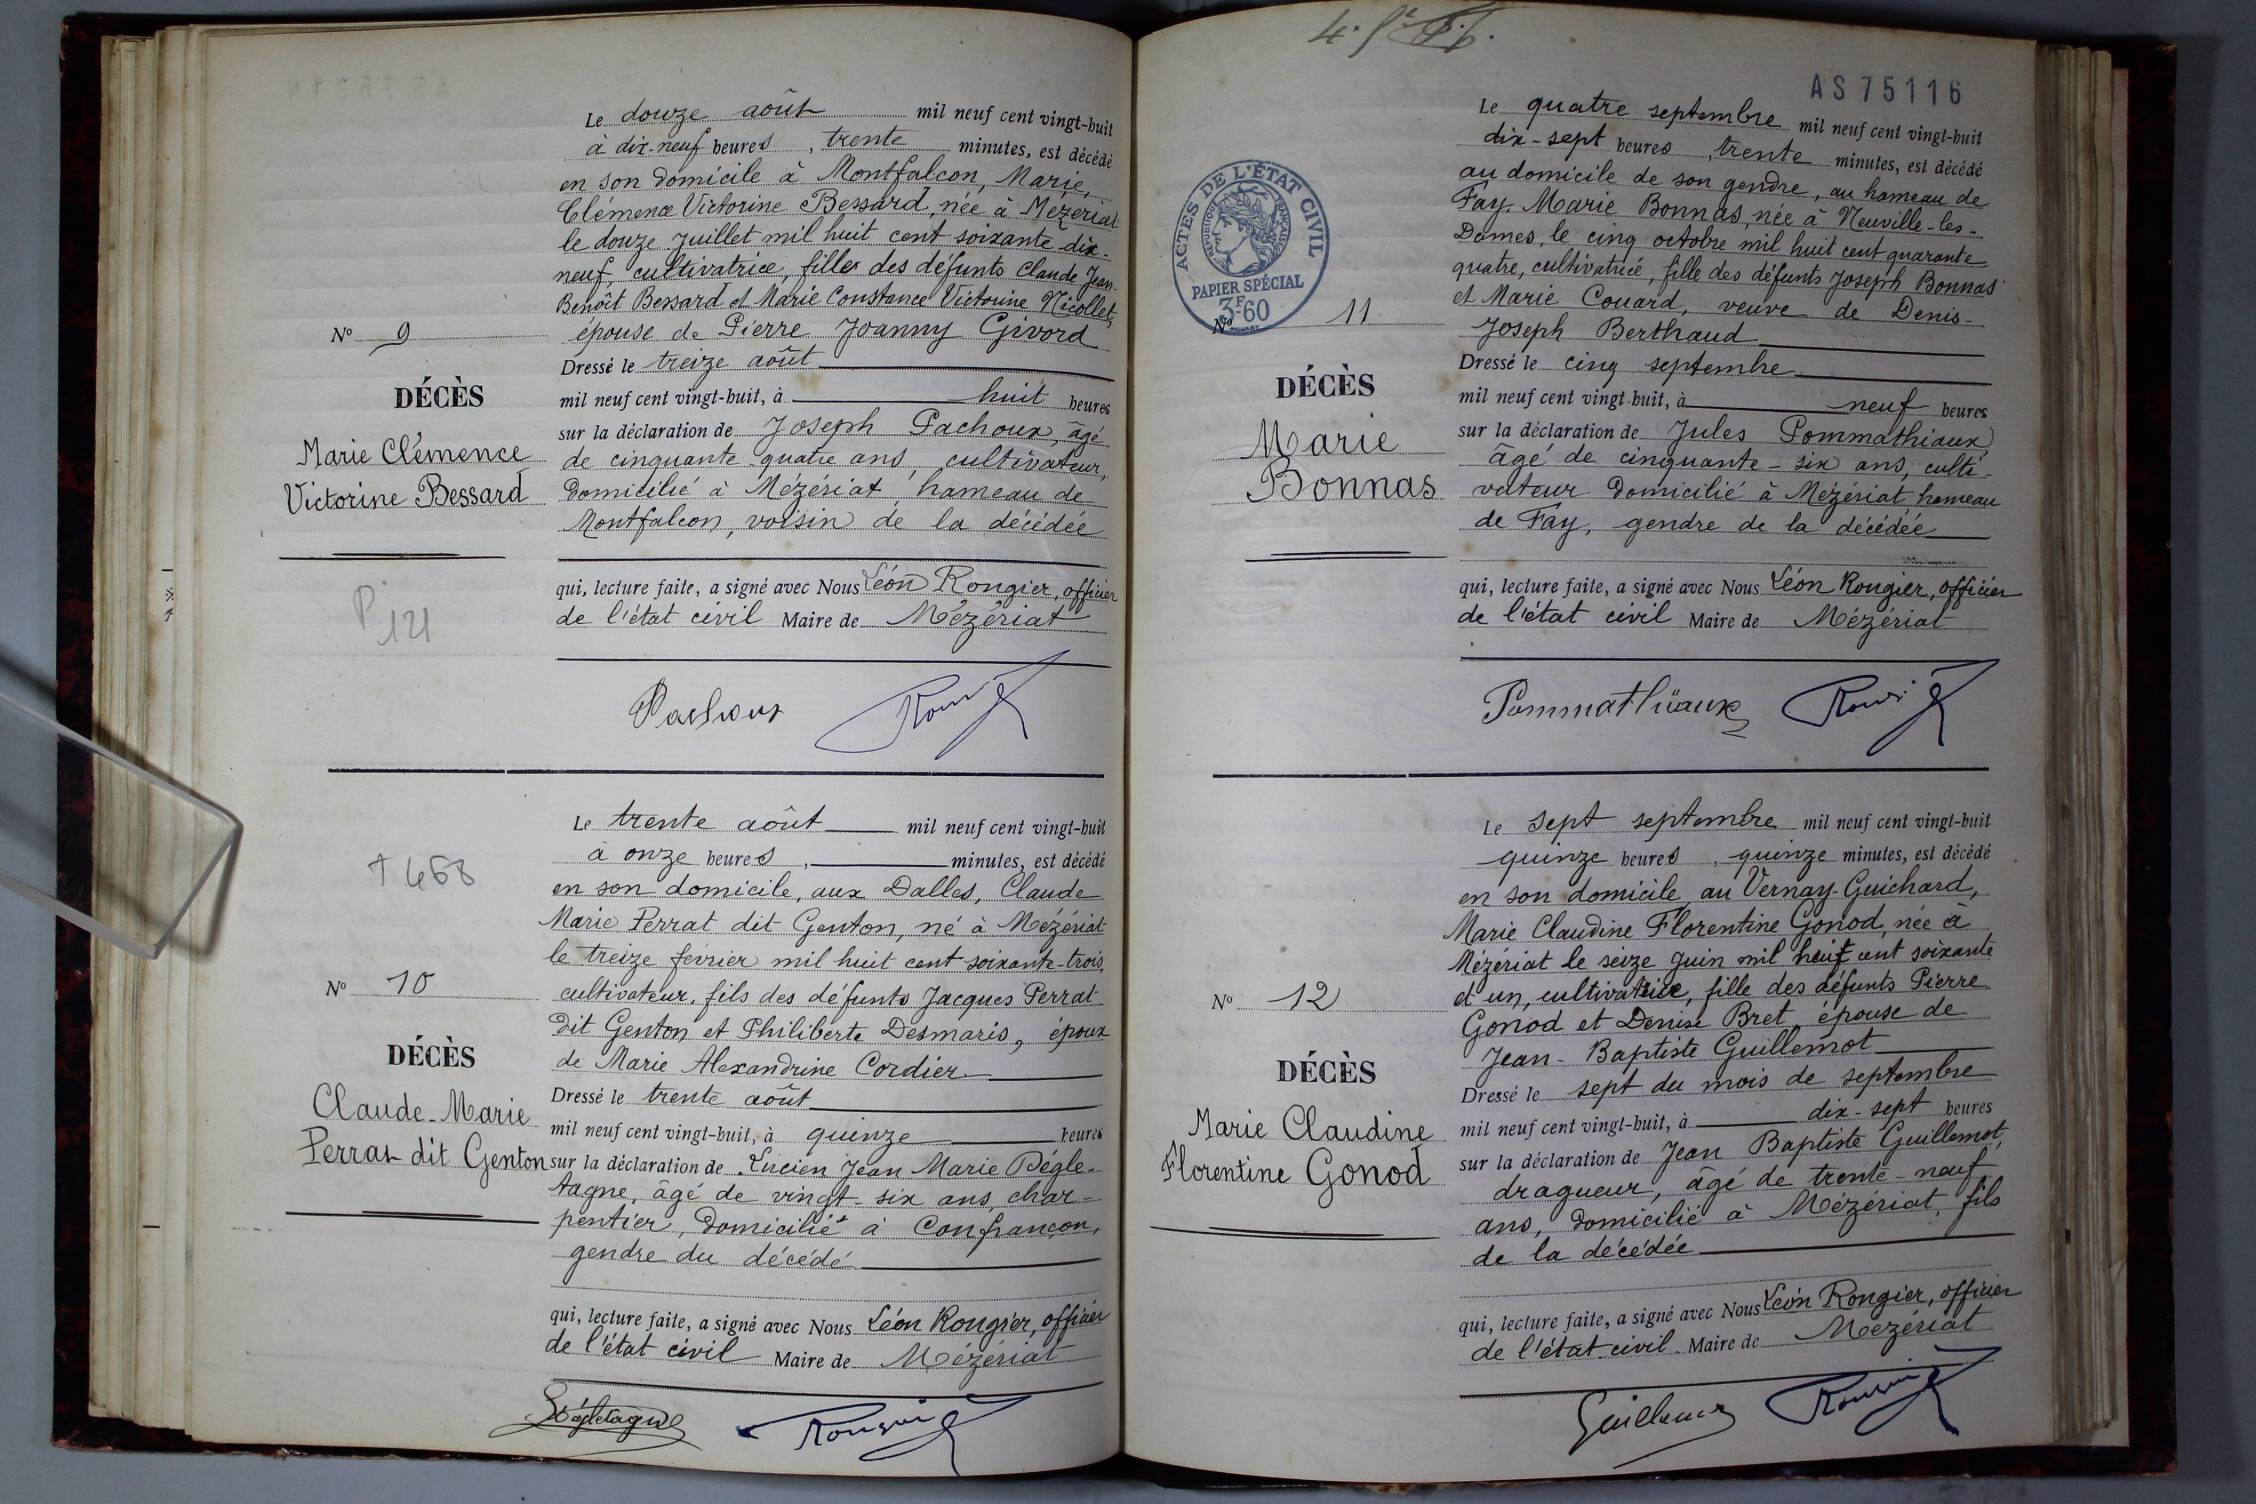 Le douze août mil neuf cent vingt-huit
à dix-neuf heures, trente minutes, est décédé
en son domicile à Montfalcon, Marie,
Clémence Victorine Bessard, née à Mézériat
le douze Juillet mil huit cent soixante-dix-
neuf, cultivatrice, fille des défunts Claude Jean-
Benoît Bessard et Marie Constance Victorine Nicollet,
épouse de Pierre Joanny Givord
Nº 9
Dressé le treize août
DÉCÈS
mil neuf cent vingt-huit, à huit heures
Marie Clémence
Victorine Bessard
sur la déclaration de Joseph Pachoux, âgé
de cinquante-quatre ans, cultivateur,
domicilié à Mézériat, hameau de
Montfalcon, voisin de la décédée
P 121
qui, lecture faite, a signé avec Nous Léon Rongier, officier
de l'état civil Maire de Mézériat
Pachoux
Le trente août mil neuf cent vingt-huit
à onze heures, minutes, est décédé
† 468
en son domicile, aux Dalles, Claude
Marie Perrat dit Genton, né à Mézériat
le treize février mil huit cent soixante-trois,
cultivateur, fils des défunts Jacques Perrat
dit Genton et Philiberte Desmaris, époux
de Marie Alexandrine Cordier
Nº 10
DÉCÈS
Claude-Marie
Perrat dit Genton
Dressé le trente août
mil neuf cent vingt-huit, à quinze heures
sur la déclaration de Lucien Jean Marie Dégle-
tagne, âgé de vingt-six ans, char-
pentier, domicilié à Confrançon,
gendre du décédé
qui, lecture faite, a signé avec Nous Léon Rongier, officier
de l'état civil Maire de Mézériat
Dégletagne Rongier
AS 75116
Le quatre septembre mil neuf cent vingt-huit
dix-sept heures, trente minutes, est décédé
au domicile de son gendre, au hameau de
Fay, Marie Bonnas, née à Neuville-les-
Dames, le cinq octobre mil huit cent quarante
quatre, cultivatrice, fille des défunts Joseph Bonnas
et Marie Couard, veuve de Denis-
Joseph Berthaud
ACTES DE L'ÉTAT CIVIL
RÉPUBLIQUE FRANÇAISE
PAPIER SPÉCIAL
3F60
Nº 11
DÉCÈS
Marie
Bonnas
Dressé le cinq septembre
mil neuf cent vingt-huit, à neuf heures
sur la déclaration de Jules Pommathiaux
âgé de cinquante-six ans, culti-
vateur domicilié à Mézériat hameau
de Fay, gendre de la décédée
qui, lecture faite, a signé avec Nous Léon Rongier, officier
de l'état civil Maire de Mézériat
Pommathiaux
Le sept septembre mil neuf cent vingt-huit
quinze heures, quinze minutes, est décédé
en son domicile au Vernay-Guichard,
Marie Claudine Florentine Gonod, née à
Mézériat le seize juin mil huit cent soixante
et un, cultivatrice, fille des défunts Pierre
Gonod et Denise Bret, épouse de
Jean-Baptiste Guillemot
Nº 12
DÉCÈS
Marie Claudine
Florentine Gonod
Dressé le sept du mois de septembre
mil neuf cent vingt-huit, à dix-sept heures
sur la déclaration de Jean Baptiste Guillemot,
dragueur, âgé de trente-neuf
ans, domicilié à Mézériat, fils
de la décédée
qui, lecture faite, a signé avec Nous Léon Rongier, officier
de l'état civil. Maire de Mézériat
Guillemot Rongier